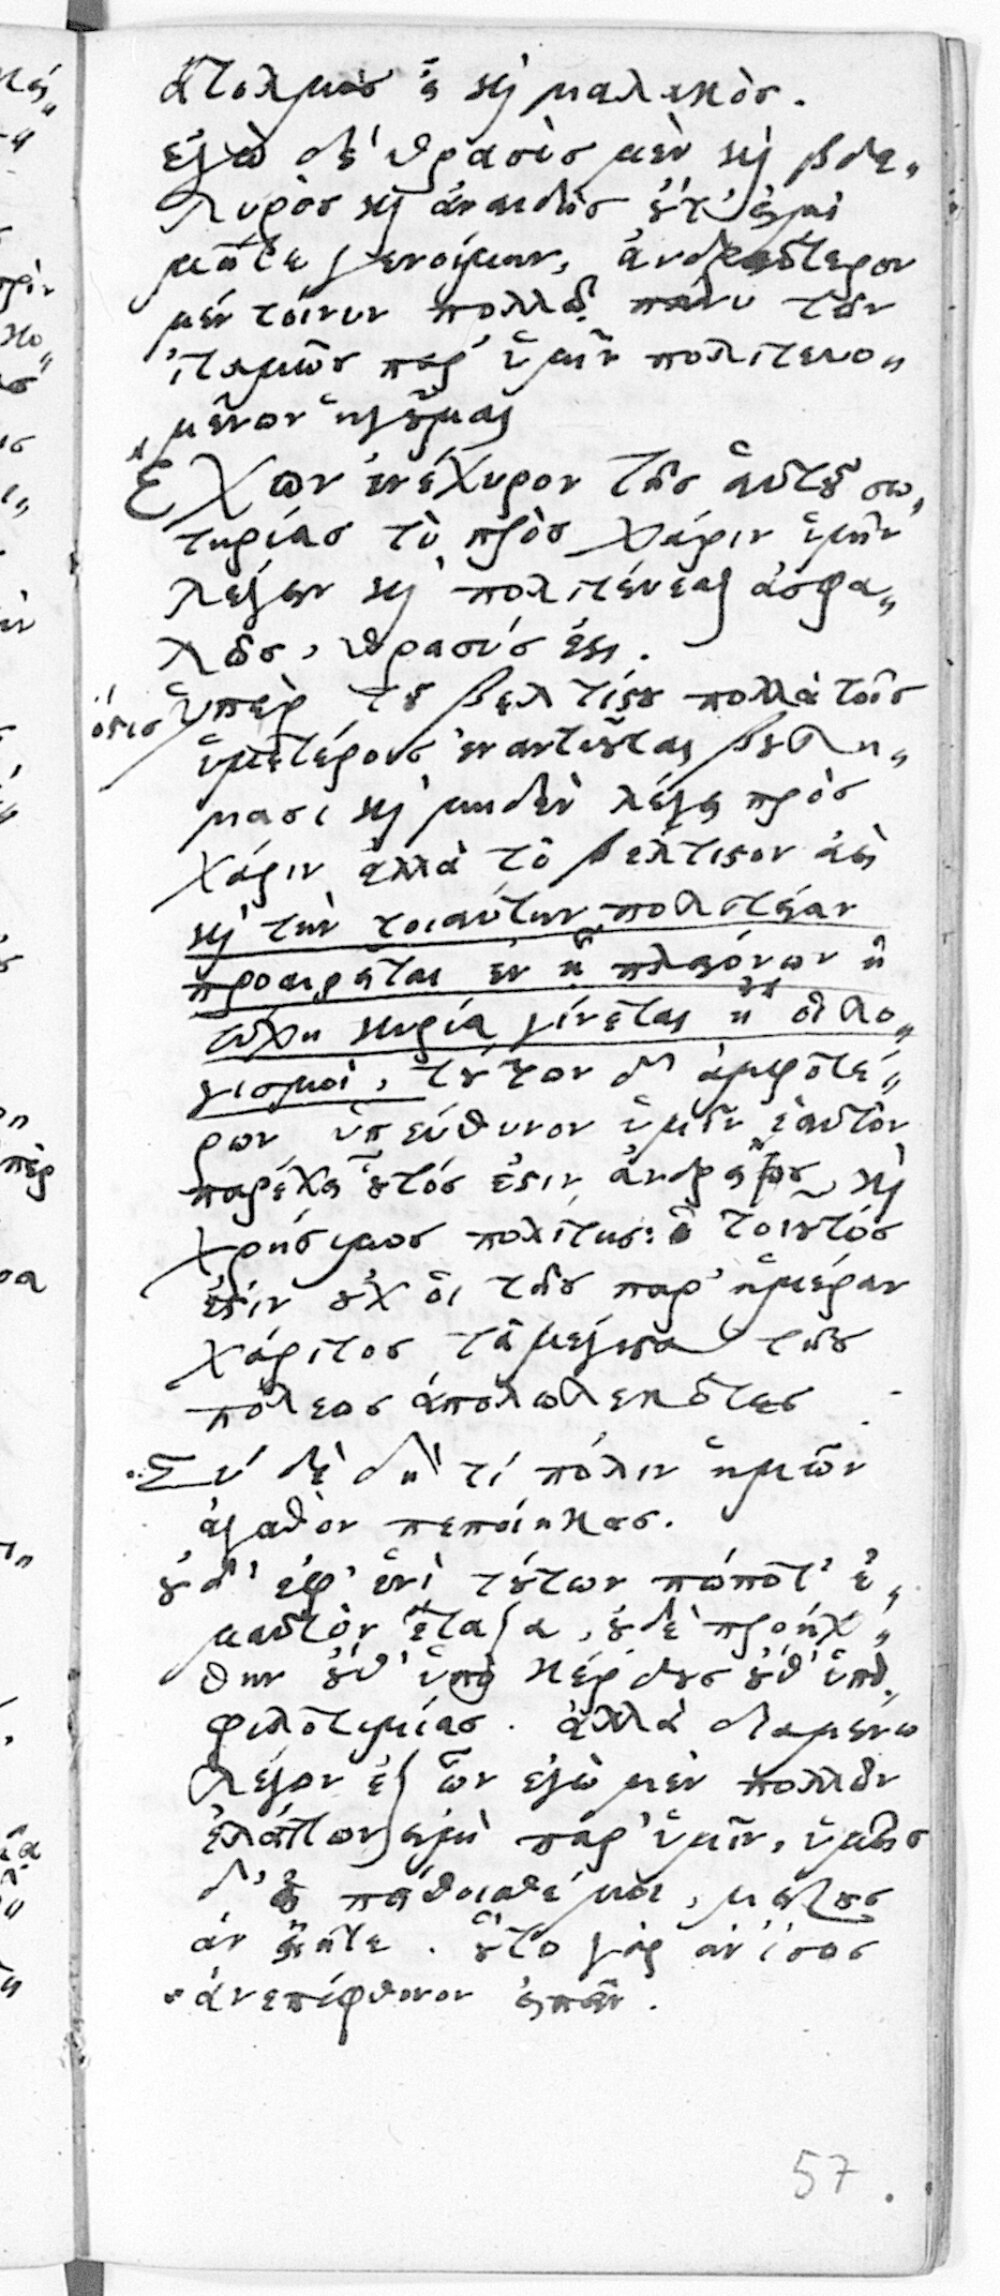 ἄτολμος εἶ καὶ μαλακὸσ.
ἐγὼ δὲ θρασὺσ μὲν καὶ βδε„
λυρὸσ καὶ ἀναιδὴσ οὔτ' εἰμὶ
μήτε γενοίμην, ἀνδρειότερον
μέν τοίνυν πολλῶν πάνυ τῶν
ἰταμῶσ παρ' ὑμῖν πολιτευο„
μένων ἡγοῦμαι
Ἔχων ἐνέχυρον τῆσ αὑτοῦ σω„
τηρίασ τὸ πρὸσ χάριν ὑμῖν
λέγειν καὶ πολιτεύεσθαι ἀσφα„
λῶσ, θρασύσ ἐστι.
ὅστισ ὑπὲρ τοῦ βελτίστου πολλὰ τοῖσ
ὑμετέροισ ἐναντιοῦται βουλή„
μασι καὶ μηδὲν λέγει πρὸσ
χάριν ἀλλὰ τὸ βέλτιστον ἀεὶ
καὶ τὴν τοιαύτην πολιτείαν
προαιρεῖται ἐν ᾗ πλειόνων ἡ
τύχη κυρία γίνεται ἢ οἱ λο„
γισμοὶ, τούτων δ' ἀμφοτέ„
ρων ὑπεύθυνον ὑμῖν ἑαυτὸν
παρέχει οὗτόσ ἐστιν ἀνδρεῖοσ καὶ
χρήσιμοσ πολίτησ: ὁ τοιοῦτόσ
ἐστίν οὐχ οἱ τῆσ παρ' ἡμέραν
χάριτοσ τὰ μέγιστα τῆσ
πόλεωσ ἀπολωλεκότεσ
Σὺ δὲ δὴ τί πόλιν ἡμῶν
ἀγαθὸν πεποίηκασ.
οὐδ' ἐφ' ἑνὶ τούτων πώποτ' ἐ„
μαυτὸν ἔταξα, οὐδὲ προήχ„
θην οὔθ' ὑπὸ κέρδουσ οὔθ' ὑπὸ
φιλοτιμίασ. ἀλλὰ διαμένω
λέγων ἐξ ὧν ἐγὼ μὲν πολλῶν
ἐλάττων εἰμὶ παρ' ὑμῖν, ὑμεῖσ
δ' εἰ πείθοισθέ μοι, μείζουσ
ἂν εἴητε. οὕτω γὰρ ἂν ἴσωσ
ἀνεπίφθονον εἰπεῖν.
57.